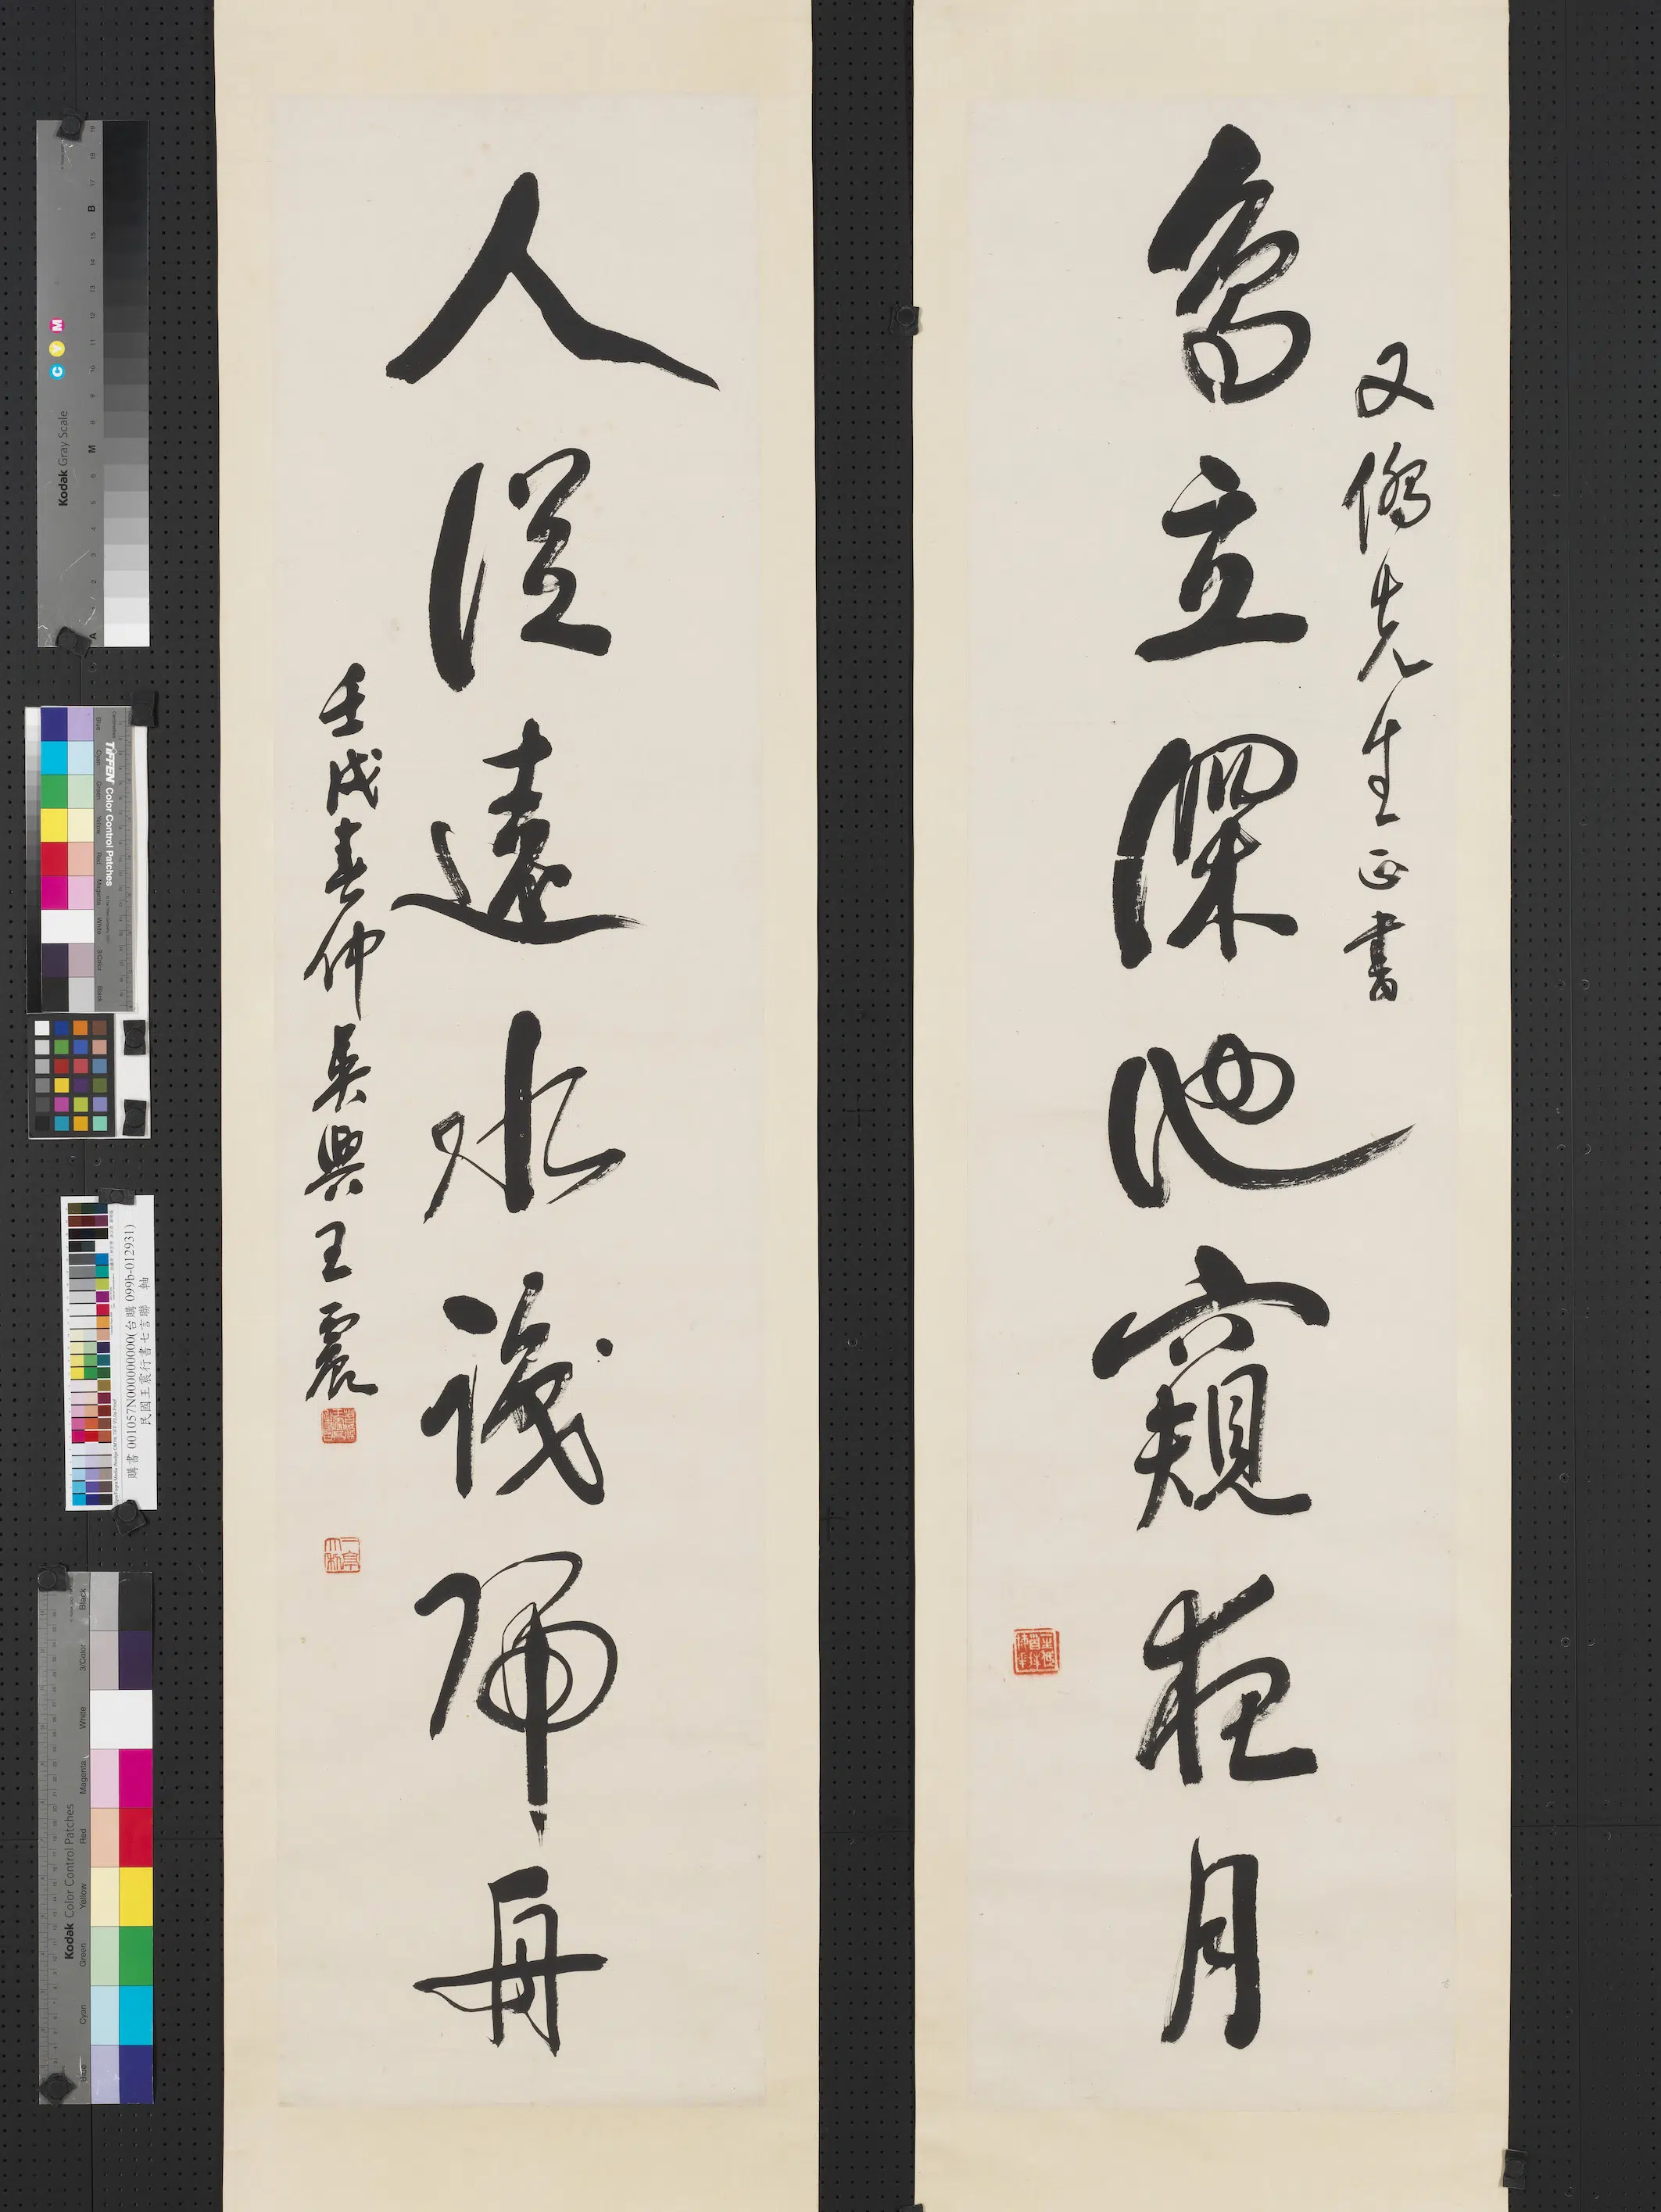 又僑先生正書
鳥立深池窺夜月
人從遠水識歸舟
壬戌春仲吳興王震
購書 001057N000000000(台購 099b-012931)
民國王震行書七言聯 軸
Kodak Gray Scale
C Y M
TIFFEN Color Control Patches
Blue Cyan Green Yellow Red Magenta White 3/Color Black
Kodak Color Control Patches
Blue Cyan Green Yellow Red Magenta White 3/Color Black